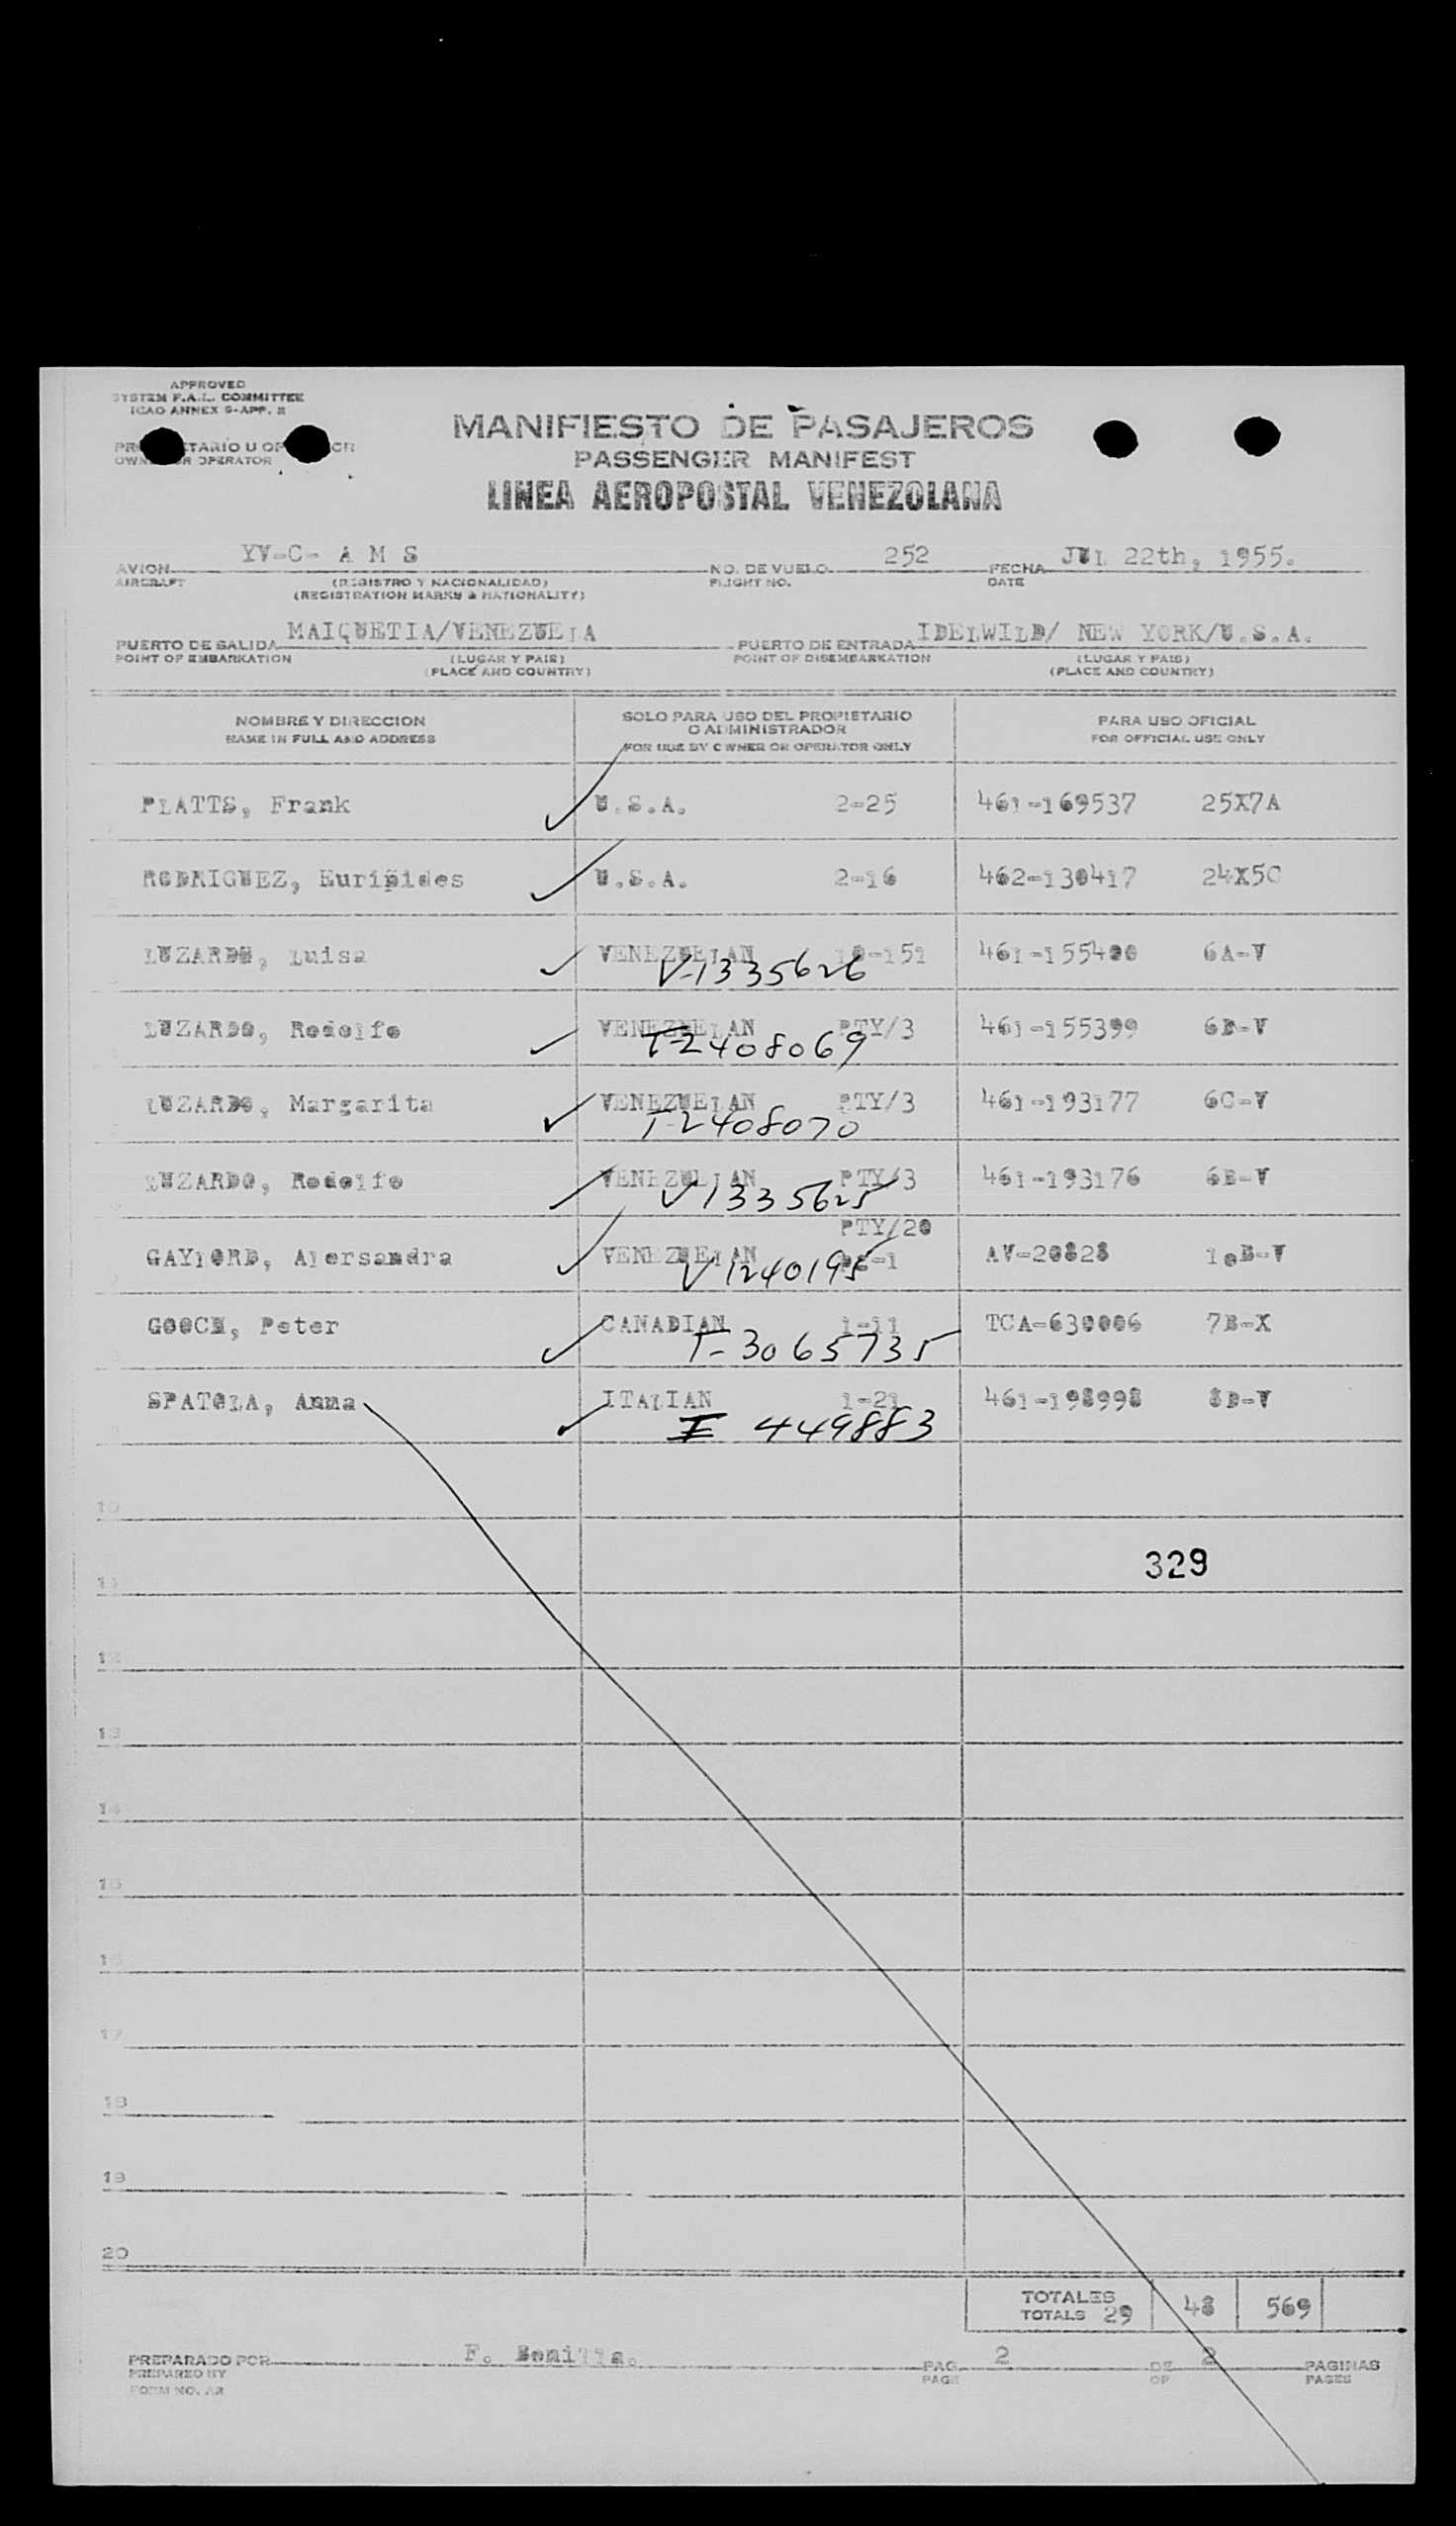 APPROVED
SYSTEM F.A.L. COMMITTEE
ICAO ANNEX 9-APP. 2
OPERATOR
MANIFIESTO DE PASAJEROS
PASSENGER MANIFEST
LINEA AEROPOSTAL VENEZOLANA
AVION YV-C- A M S NO. DE VUELO 252 FECHA JUL 22th, 1955.
AIRCRAFT (REGISTRO Y NACIONALIDAD) FLIGHT NO. DATE
(REGISTRATION MARKS & NATIONALITY)
PUERTO DE SALIDA MAIQUETIA/VENEZUELA PUERTO DE ENTRADA IDELWILD/ NEW YORK/U.S.A.
POINT OF EMBARKATION (LUGAR Y PAIS) POINT OF DISEMBARKATION (LUGAR Y PAIS)
(PLACE AND COUNTRY) (PLACE AND COUNTRY)
NOMBRE Y DIRECCION SOLO PARA USO DEL PROPIETARIO PARA USO OFICIAL
O ADMINISTRADOR
NAME IN FULL AND ADDRESS FOR USE BY OWNER OR OPERATOR ONLY FOR OFFICIAL USE ONLY
PLATTS, Frank U.S.A. 2-25 461-169537 25X7A
RODRIGUEZ, Euripides U.S.A. 2-16 462-130417 24X5C
LUZARDO, Luisa VENEZUELAN 10-151 461-155400 6A-V
V-1335626
LUZARDO, Rodolfo VENEZUELAN PTY/3 461-155399 6D-V
T-2408069
LUZARDO, Margarita VENEZUELAN PTY/3 461-193177 6C-V
T-2408070
LUZARDO, Rodolfo VENEZUELAN PTY/3 461-193176 6B-V
V1335625
PTY/20
GAYLORD, Alersandra VENEZUELAN AV-20828 10B-V
V1240195
GOOCH, Peter CANADIAN 1-11 TCA-630006 7B-X
T-3065735
SPATOLA, Anna ITALIAN 1-21 461-198998 8D-V
I 449883
10
329
11
12
13
14
15
16
17
18
19
20
TOTALES
TOTALS 29 48 569
PREPARADO POR F. Bonilla. PAG. 2 DE 2 PAGINAS
PREPARED BY PAGE OF PAGES
FORM NO. A2